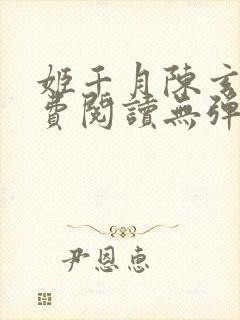 姬千月陳玄
費閱讀無彈
尹恩惠